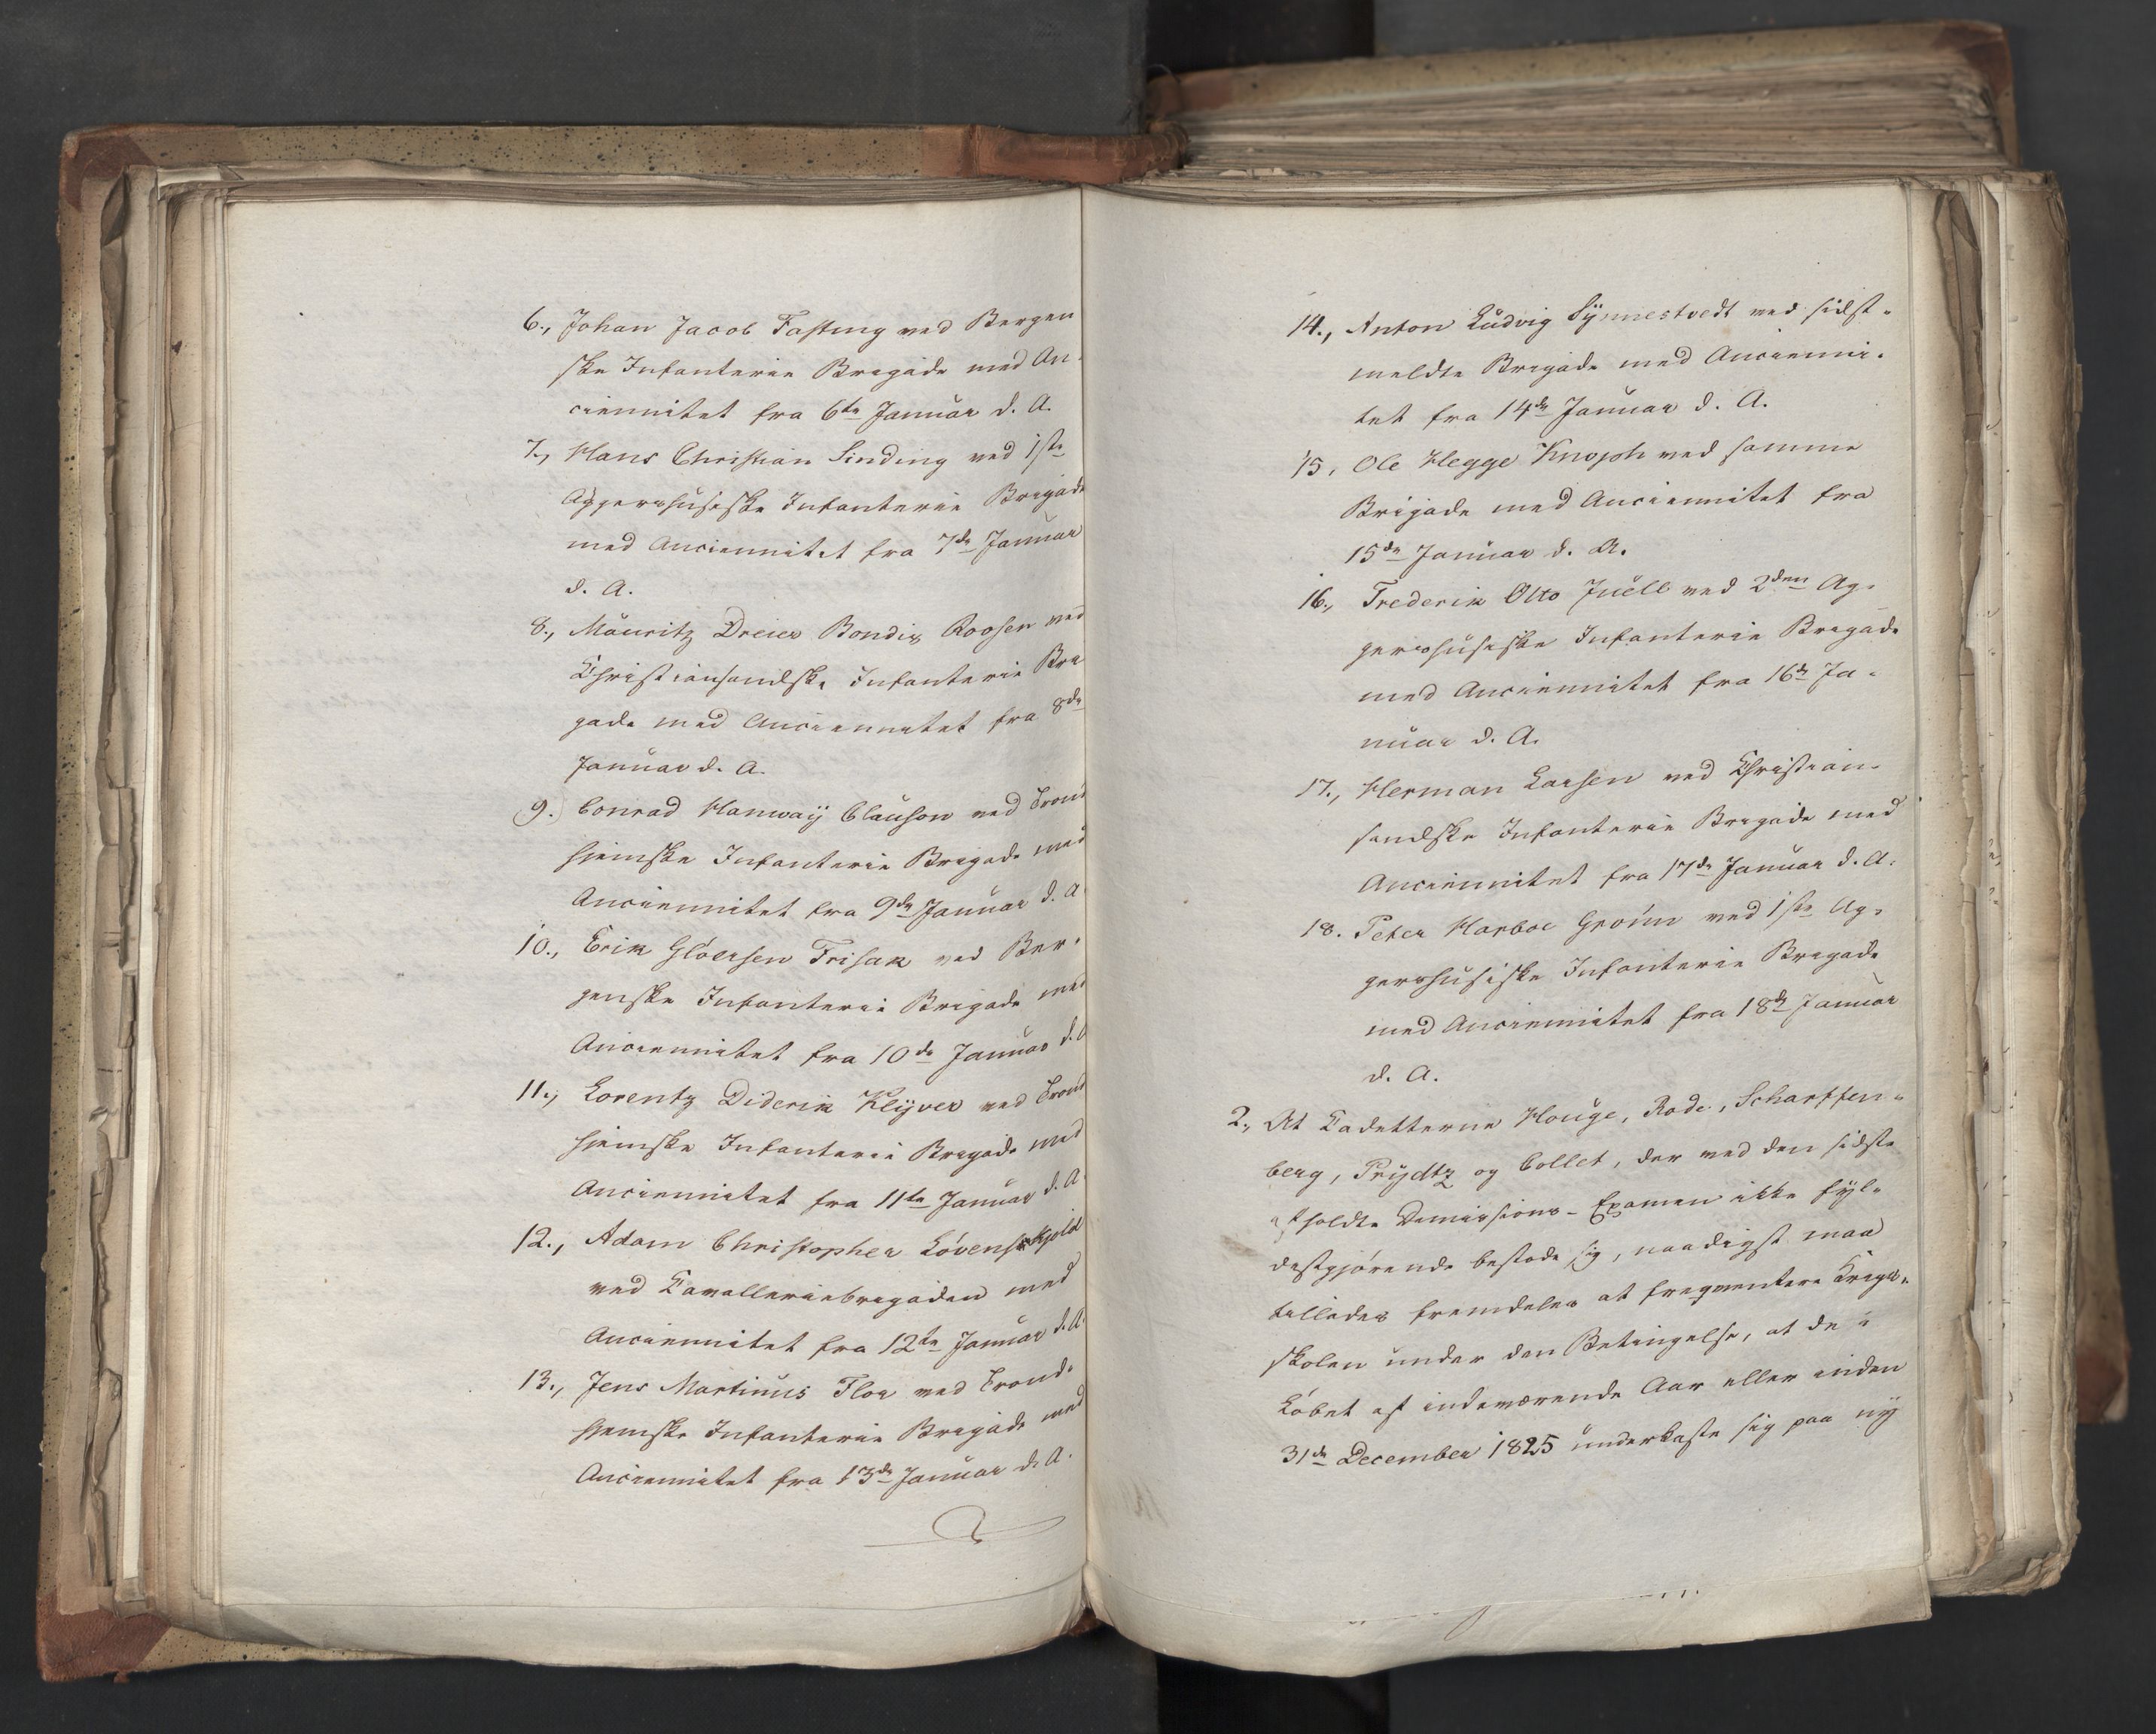 6., Johan Jacob Fasting ved Bergen
ske Infanterie Brigade med An-
ciennitet fra 6te Januar d. A.
7., Hans Christian Sinding ved 1ste
Aggershusiske Infanterie Brigade
med Anciennitet fra 7de Januar
d. A.
8., Mauritz Dreier Bondix Roosen ved
Christiansandske Infanterie Bri
gade med Anciennitet fra 8de
Januar d. A.
9. Conrad Hanway Clauson ved Trond
hiemske Infanterie Brigade med
Anciennitet fra 9de Januar d. A
10., Erik Glöersen Frisak ved Ber-
genske Infanterie Brigade med
Anciennitet fra 10de Januar d. A
11., Lorentz Diderik Klyver ved Trond
hiemske Infanterie Brigade med
Anciennitet fra 11te Januar d. A.
12., Adam Christopher Lövenskjold
ved Cavalleriebrigaden med
Anciennitet fra 12te Januar d. A.
13., Jens Martinus Flor ved Trond-
hjemske Infanterie Brigade med
Anciennitet fra 13de Januar d. A.
14., Anton Ludvig Synnestvedt ved sidst-
meldte Brigade med Ancienni-
tet fra 14de Januar d. A.
15, Ole Hegge Knoph ved samme
Brigade med Anciennitet fra
15de Januar d. A.
16., Frederik Otto Juell ved 2den Ag-
gershusiske Infanterie Brigade
med Anciennitet fra 16de Ja-
nuar d. A.
17., Herman Larsen ved Christian-
sandske Infanterie Brigade med
Anciennitet fra 17de Januar d. A.
18. Peter Harboe Groım ved 1ste Ag-
gershusiske Infanterie Brigade
med Anciennitet fra 18de Januar
d. A.
2., At Cadetterne Houge, Rode, Scharffen-
berg, Prydtz og Collet, der ved den sidste
afholdte Dimissions-Examen ikke fyl-
destgjørende bestode sig, naadigst maa
tillades fremdeles at freqventere Krigs-
skolen under den Betingelse, at de i
Løbet af indeværende Aar eller inden
31de December 1825 underkaste sig paa ny